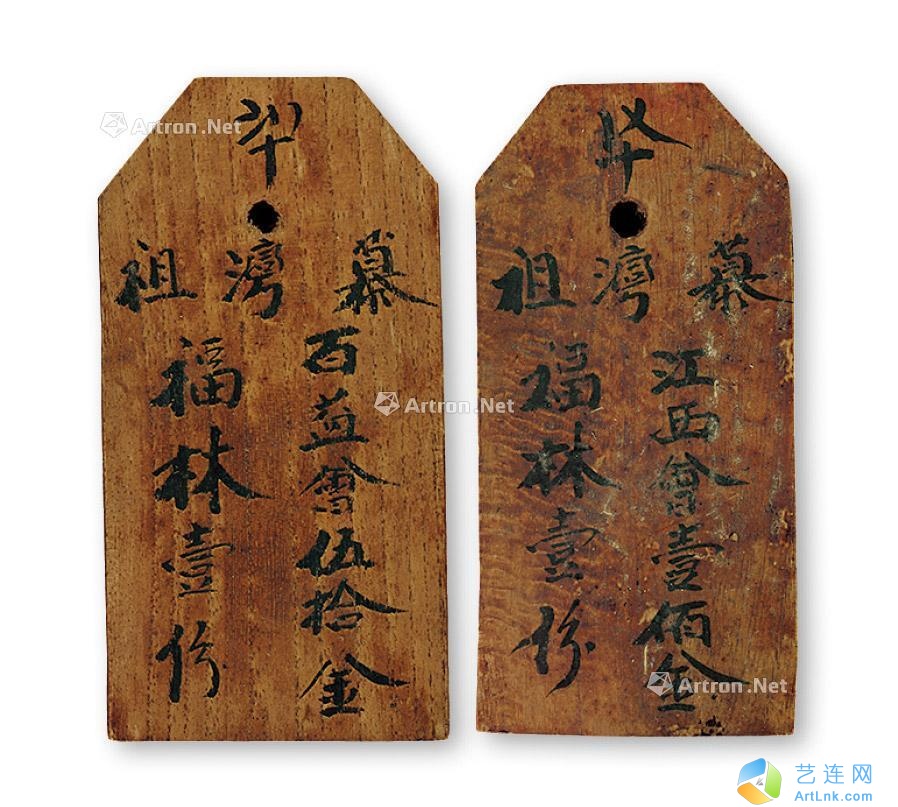 慕灣祖
百益會伍拾金
福林壹份
慕灣祖
江西會壹佰金
福林壹份
Artron.Net
Artron.Net
Artron.Net
艺连网
ArtLnk.com